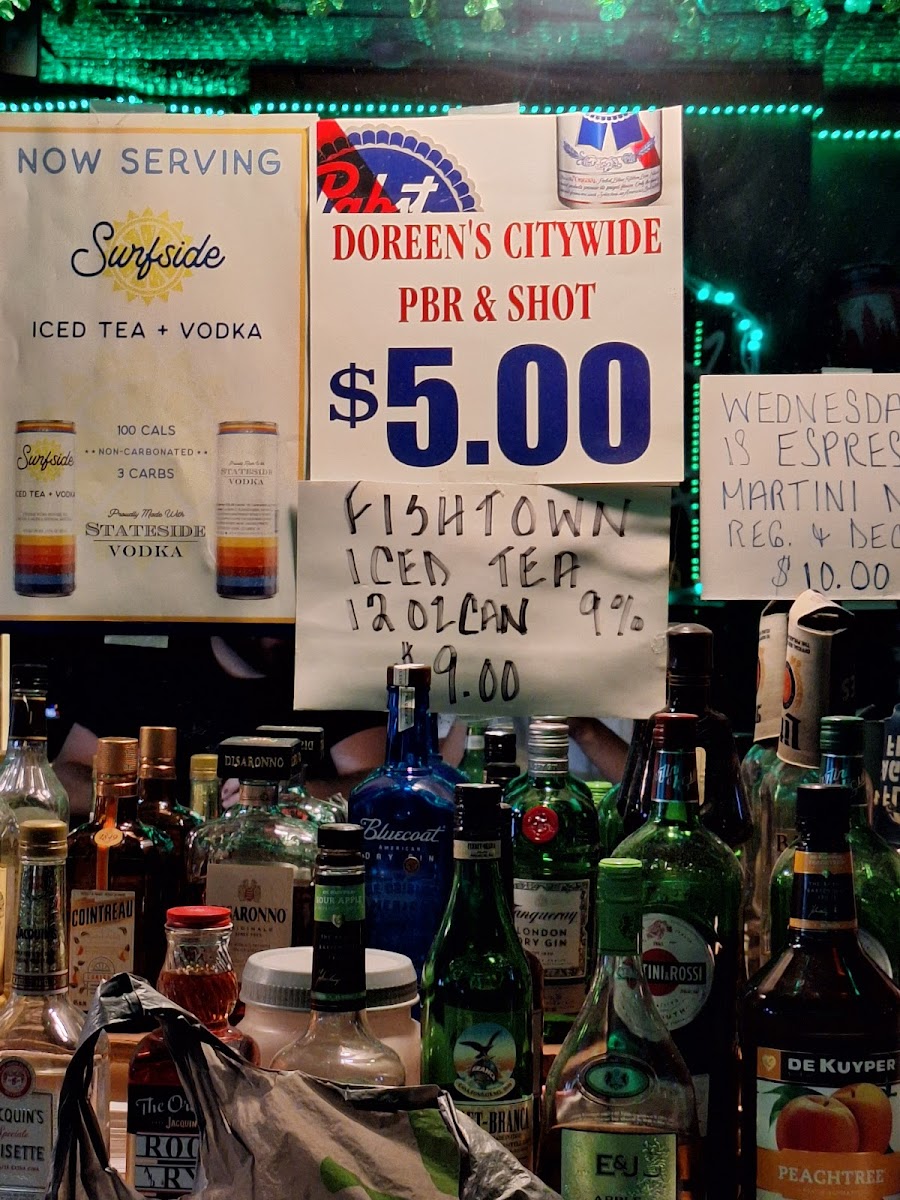 NOW SERVING
Surfside
ICED TEA + VODKA
100 CALS
**NON-CARBONATED**
3 CARBS
Proudly Made With
STATESIDE
VODKA
Surfside
ICED TEA + VODKA
Proudly Made With
STATESIDE
VODKA
Pabst
DOREEN'S CITYWIDE
PBR & SHOT
$5.00
FISHTOWN
ICED TEA
12 OZ CAN 9%
$9.00
WEDNESDA
IS ESPRES
MARTINI N
REG. & DEC
$10.00
DISARONNO
COINTREAU
ARONNO
Bluecoat
AMERICAN
DRY GIN
SOUR APPLE
Tanqueray
LONDON
DRY GIN
TINI & ROSSI
The Or
JACQUIN
ROC
RY
CQUIN'S
ISETTE
ET-BRANCA
E&J
APPLE
DE KUYPER
PEACHTREE